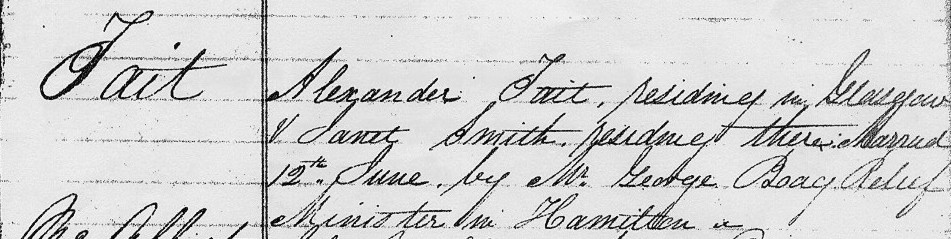 Tait
Alexander Tait, residing in Glasgow
& Janet Smith, residing there: Married
12th. June, by Mr. George Boag Relief
Minister in Hamilton